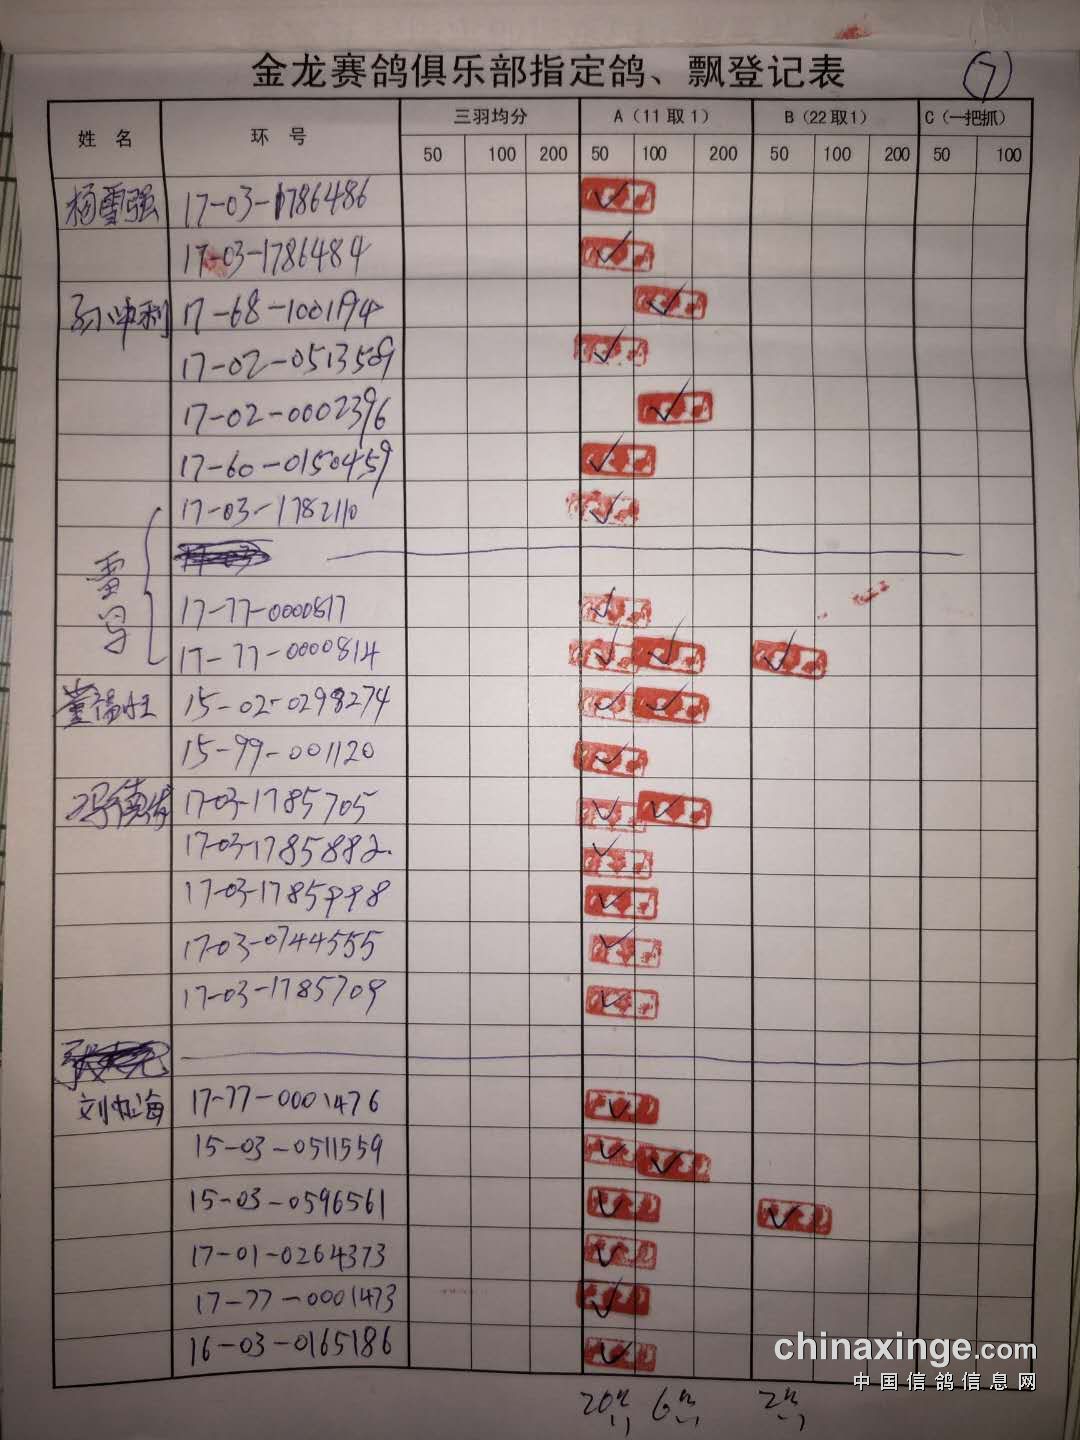 金龙赛鸽俱乐部指定鸽、飘登记表 7
姓 名 环 号 三羽均分 A（11取1） B（22取1） C（一把抓）
50 100 200 50 100 200 50 100 200 50 100
杨雪强 17-03-1786486 ✓
17-03-1786484 ✓
孙冲利 17-68-1001194 ✓
17-02-0513509 ✓
17-02-0002396 ✓
17-60-0150459 ✓
17-03-1782110 ✓
雷写
17-77-0000817 ✓
17-77-0000814 ✓ ✓ ✓
董福旺 15-02-0298274 ✓ ✓
15-99-001120 ✓
冯德 17-03-1785705 ✓ ✓
17-03-1785882 ✓
17-03-1785998 ✓
17-03-0744555 ✓
17-03-1785709 ✓
刘 海 17-77-0001476 ✓
15-03-0511559 ✓ ✓
15-03-0596561 ✓ ✓
17-01-0264373 ✓
17-77-0001473 ✓
16-03-0165186 ✓
20 6 2
chinaxinge.com
中国信鸽信息网